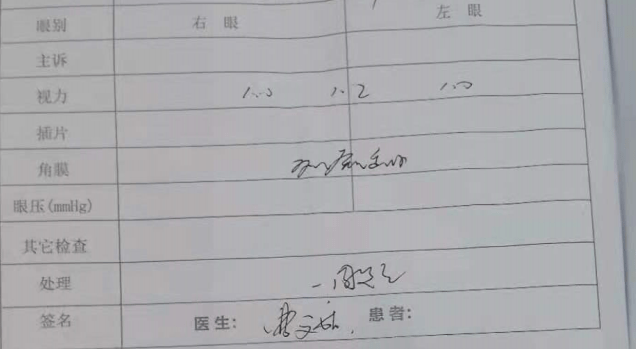 眼别 右眼 左眼
主诉
视力 1.0 1.2 1.0
插片
角膜
眼压(mmHg)
其它检查
处理 一周复
签名 医生: 患者: